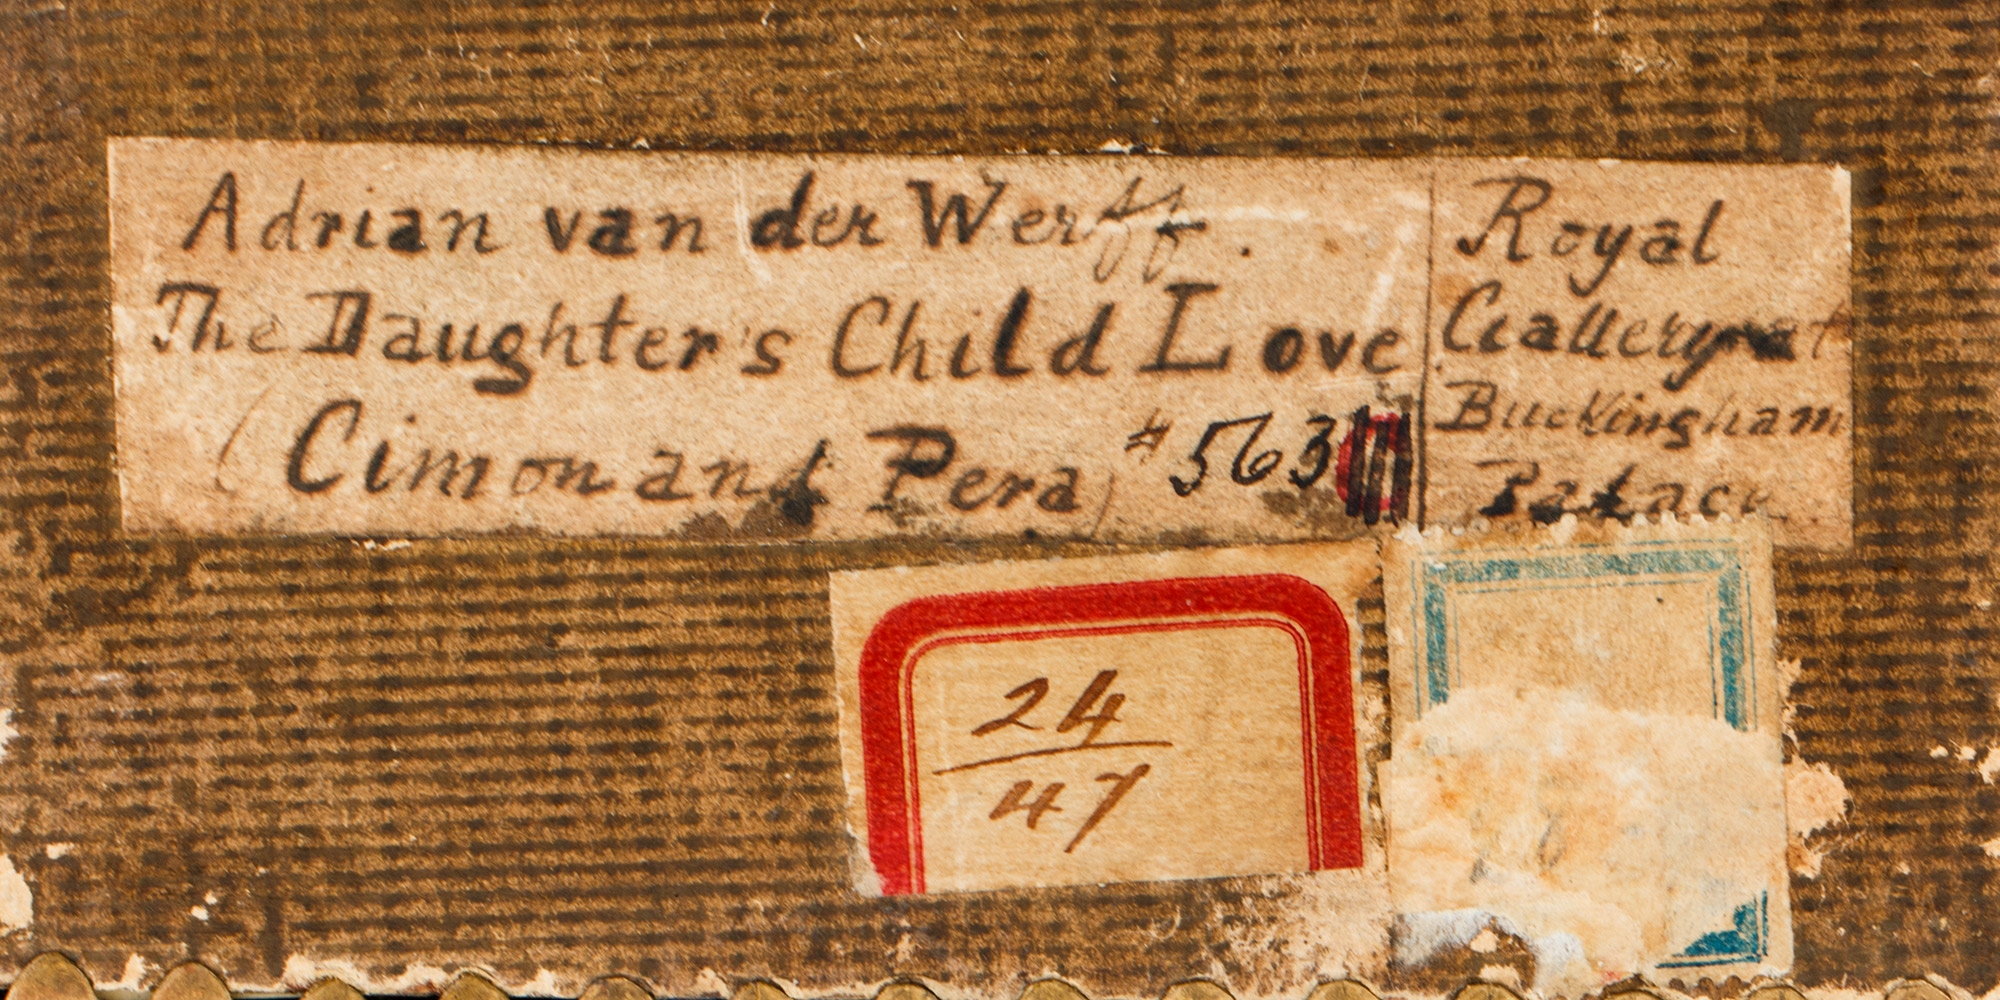 Adrian van der Werff.
The Daughter's Child Love
(Cimon and Pera) #563
Royal
Gallery at
Buckingham
Palace.
24
47